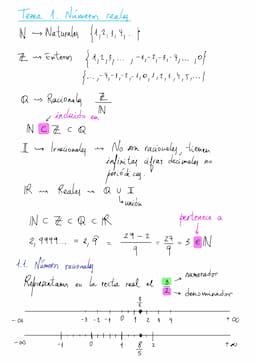 Tema 1. Números reales
N → Naturales {1, 2, 3, 4, ..}
Z → Enteros {1, 2, 3, ... , -1, -2, -3, -4, ... , 0}
{..., -4, -3, -2, -1, 0, 1, 2, 3, 4, 5, ...}
Q → Racionales Z/N
incluido en
N ⊂ Z ⊂ Q
I → Irracionales → No son racionales, tienen
infinitas cifras decimales no
periódicas.
R → Reales → Q ∪ I
unión
N ⊂ Z ⊂ Q ⊂ R
pertenece a
2,9999... = 2,9 = (29-2)/9 = 27/9 = 3 ∈ N
1.1. Números racionales
Representamos en la recta real el
numerador
denominador
-∞ -3 -2 -1 0 1 2 3 4 +∞
-∞ -1 0 1 2 +∞